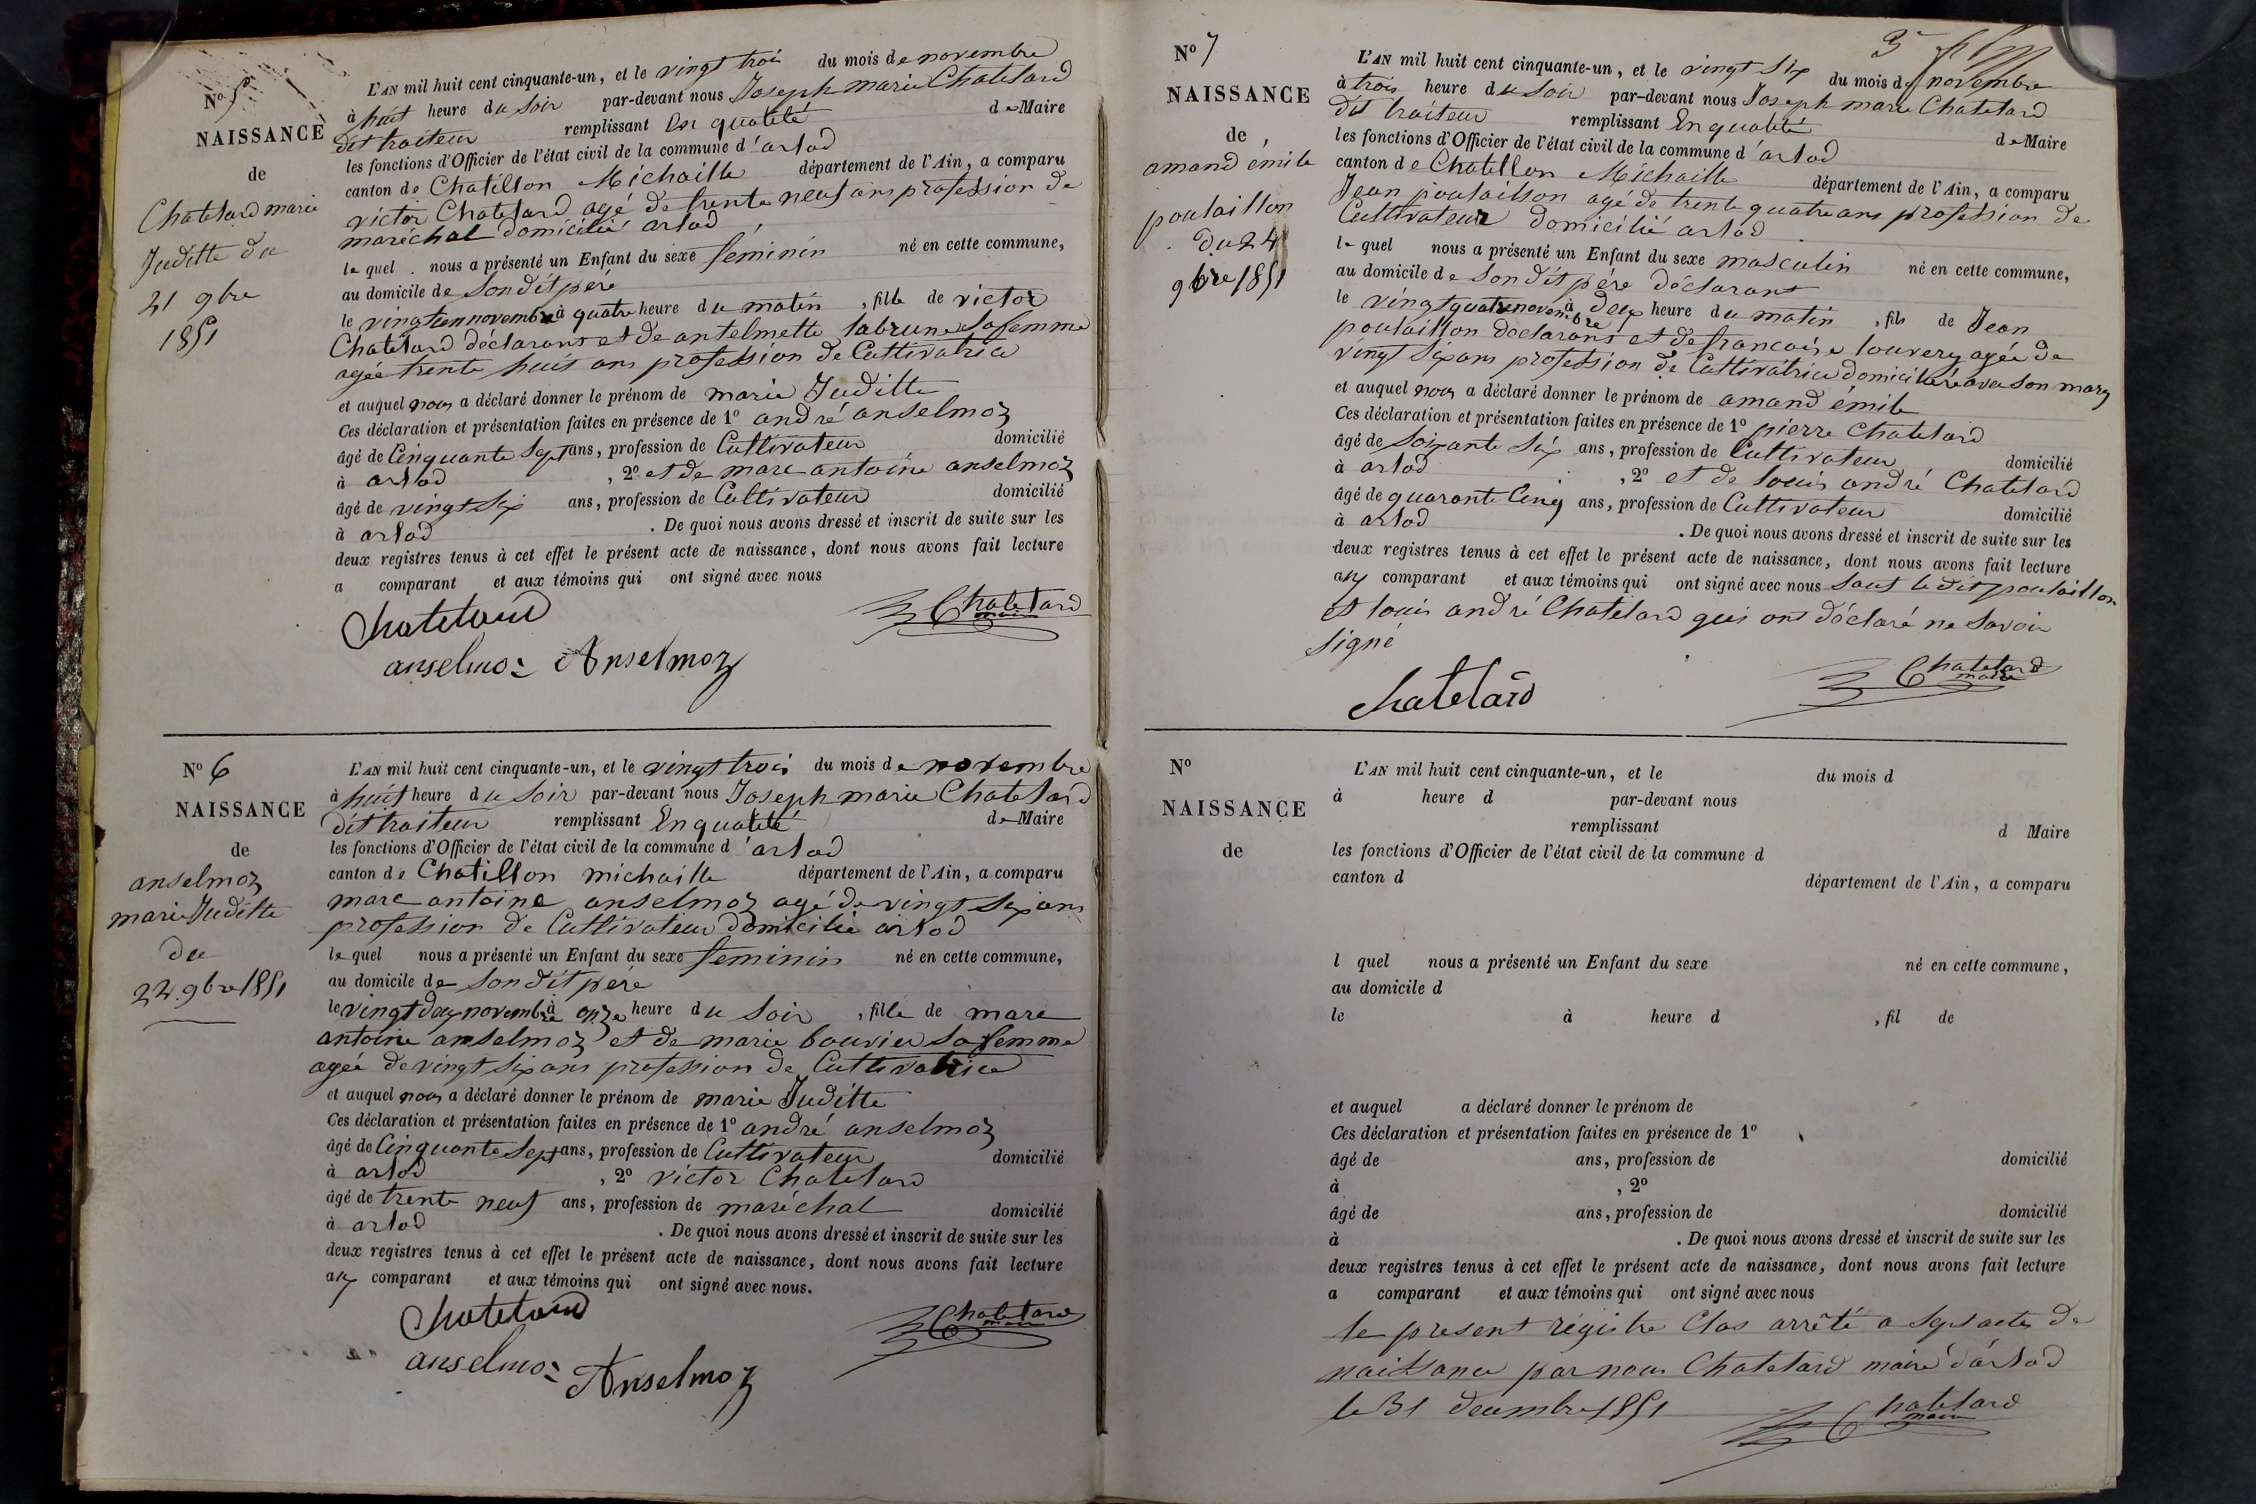 N° 5
NAISSANCE
de
Chatelard marie
Juditte du
21 9bre
1851
L'AN mil huit cent cinquante-un, et le vingt trois du mois de novembre
à huit heure du soir par-devant nous Joseph marie Chatelard
dit traiteur remplissant En qualité de Maire
les fonctions d'Officier de l'état civil de la commune d'arlod
canton de Chatillon Michaille département de l'Ain, a comparu
victor Chatelard agé de trente neuf ans profession de
maréchal domicilié arlod
le quel nous a présenté un Enfant du sexe feminin né en cette commune,
au domicile de son dit père
le vingt un novembre à quatre heure du matin, fille de victor
Chatelard déclarant et de antelmette labrune sa femme
agée trente huit ans profession de Cultivatrice
et auquel nous a déclaré donner le prénom de marie Juditte
Ces déclaration et présentation faites en présence de 1° andré anselmoz
âgé de Cinquante sept ans, profession de Cultivateur domicilié
à arlod, 2° et de marc antoine anselmoz
âgé de vingt six ans, profession de Cultivateur domicilié
à arlod. De quoi nous avons dressé et inscrit de suite sur les
deux registres tenus à cet effet le présent acte de naissance, dont nous avons fait lecture
a comparant et aux témoins qui ont signé avec nous
Chatelard
Chatelard
maire
anselmoz Anselmoz
N° 6
NAISSANCE
de
anselmoz
marie Juditte
du
22 9bre 1851
L'AN mil huit cent cinquante-un, et le vingt trois du mois de novembre
à huit heure du soir par-devant nous Joseph marie Chatelard
dit traiteur remplissant En qualité de Maire
les fonctions d'Officier de l'état civil de la commune d'arlod
canton de Chatillon michaille département de l'Ain, a comparu
marc antoine anselmoz agé de vingt six ans
profession de Cultivateur domicilié arlod
le quel nous a présenté un Enfant du sexe feminin né en cette commune,
au domicile de son dit père
le vingt deux novembre à onze heure du soir, fille de marc
antoine anselmoz et de marie bouvier sa femme
agée de vingt six ans profession de Cultivatrice
et auquel nous a déclaré donner le prénom de marie Juditte
Ces déclaration et présentation faites en présence de 1° andré anselmoz
âgé de Cinquante sept ans, profession de Cultivateur domicilié
à arlod, 2° victor Chatelard
âgé de trente neuf ans, profession de maréchal domicilié
à arlod. De quoi nous avons dressé et inscrit de suite sur les
deux registres tenus à cet effet le présent acte de naissance, dont nous avons fait lecture
aux comparant et aux témoins qui ont signé avec nous.
Chatelard
Chatelard
maire
anselmoz Anselmoz
N° 7
NAISSANCE
de
amand émile
poulaillon
du 24
9bre 1851
L'AN mil huit cent cinquante-un, et le vingt six du mois de novembre
à trois heure du soir par-devant nous Joseph marie Chatelard
dit traiteur remplissant En qualité de Maire
les fonctions d'Officier de l'état civil de la commune d'arlod
canton de Chatillon Michaille département de l'Ain, a comparu
Jean poulaillon agé de trente quatre ans profession de
Cultivateur domicilié arlod
le quel nous a présenté un Enfant du sexe masculin né en cette commune,
au domicile de son dit père déclarant
le vingt quatre novembre à deux heure du matin, fils de Jean
poulaillon déclarant et de francoise louvery agée de
vingt six ans profession de Cultivatrice domiciliée avec son mary
et auquel nous a déclaré donner le prénom de amand émile
Ces déclaration et présentation faites en présence de 1° pierre Chatelard
âgé de soixante six ans, profession de Cultivateur domicilié
à arlod, 2° et de louis andré Chatelard
âgé de quarante cinq ans, profession de Cultivateur domicilié
à arlod. De quoi nous avons dressé et inscrit de suite sur les
deux registres tenus à cet effet le présent acte de naissance, dont nous avons fait lecture
aux comparant et aux témoins qui ont signé avec nous sauf le dit poulaillon
et louis andré Chatelard qui ont déclaré ne savoir
signé
Chatelard
maire
Chatelard
N°
NAISSANCE
de
L'AN mil huit cent cinquante-un, et le du mois d
à heure d par-devant nous
remplissant d Maire
les fonctions d'Officier de l'état civil de la commune d
canton d département de l'Ain, a comparu
l quel nous a présenté un Enfant du sexe né en cette commune,
au domicile d
le à heure d, fil de
et auquel a déclaré donner le prénom de
Ces déclaration et présentation faites en présence de 1°
âgé de ans, profession de domicilié
à, 2°
âgé de ans, profession de domicilié
à. De quoi nous avons dressé et inscrit de suite sur les
deux registres tenus à cet effet le présent acte de naissance, dont nous avons fait lecture
a comparant et aux témoins qui ont signé avec nous
le present régistre Clos arrêté a sept actes de
naissance par nous Chatelard maire d'arlod
le 31 decembre 1851
Chatelard
maire